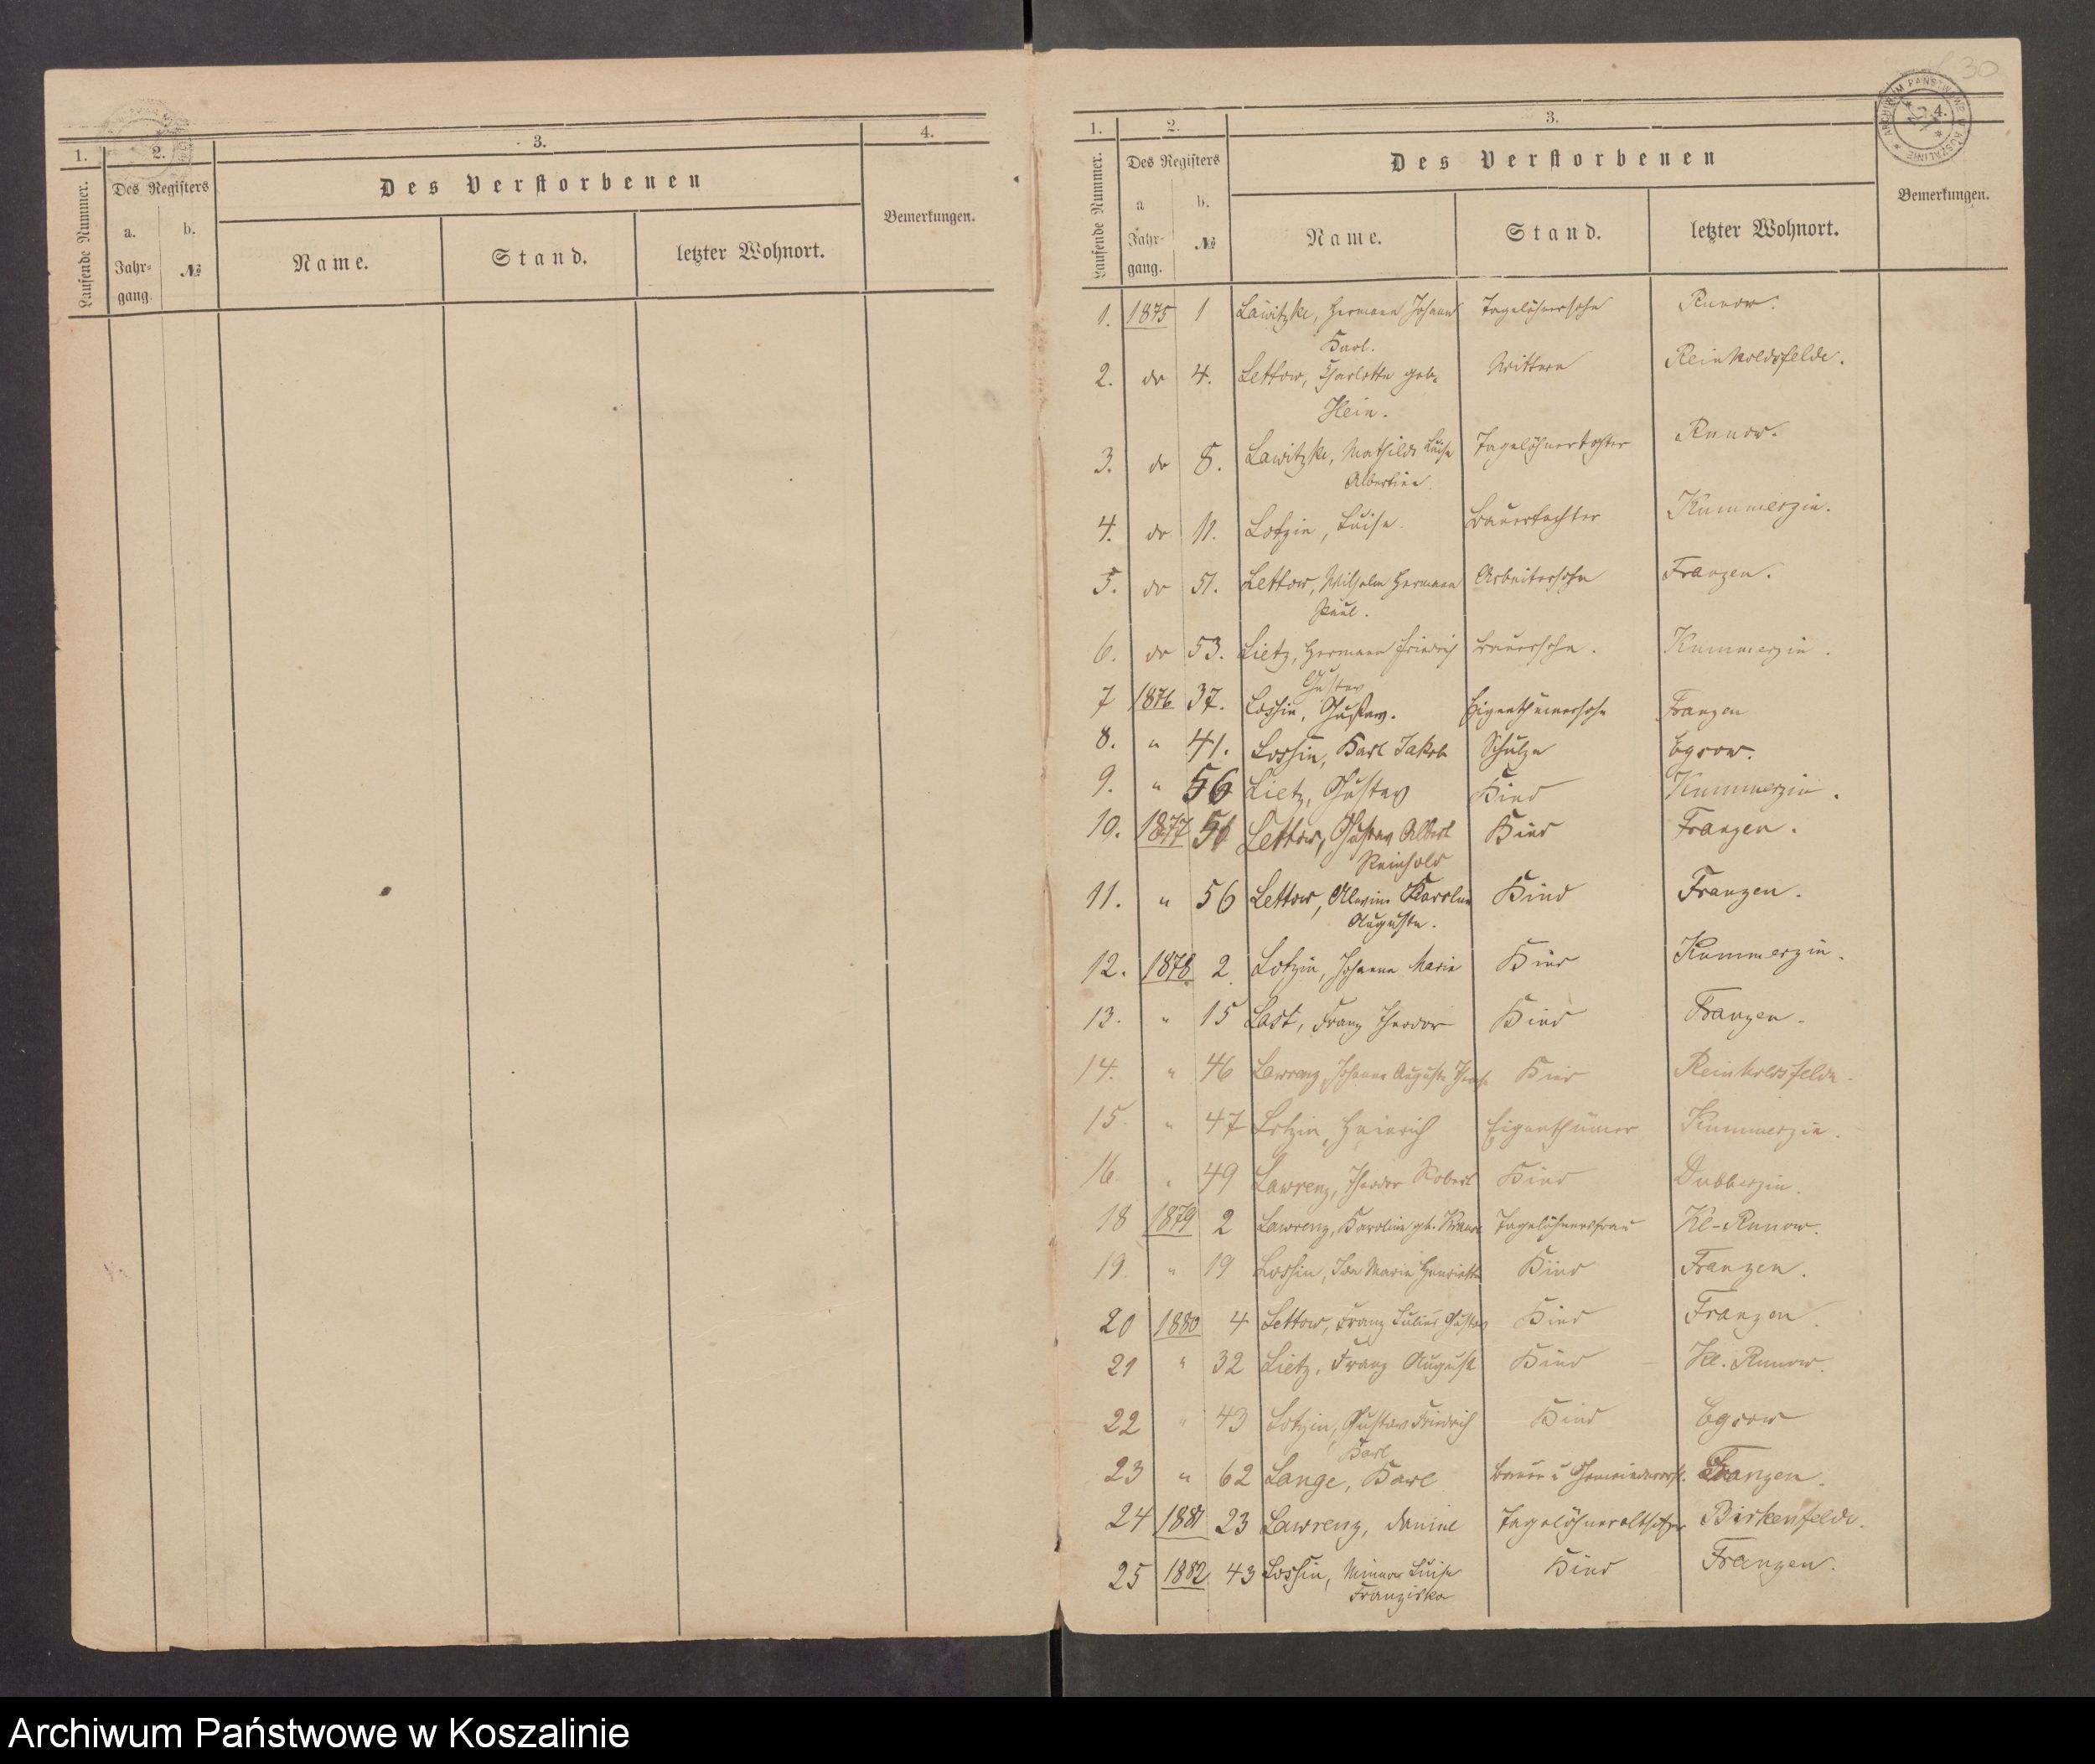 3.
4.
1.
2.
Des Registers
Des Verstorbenen
Laufende Nummer.
a.
b.
Bemerkungen.
Jahr-
gang.
№
Name.
Stand.
letzter Wohnort.
30
ARCHIWUM PAŃSTWOWE W KOSZALINIE
1.
2.
3.
4.
Laufende Nummer.
Des Registers
Des Verstorbenen
Bemerkungen.
a
b.
Jahr-
gang.
№
Name.
Stand.
letzter Wohnort.
1. 1875 1 Lawitzke, Hermann Johann Tagelöhnersohn Runow.
Karl.
2. do 4. Lettow, Charlotte geb. Wittwe Reinholdsfelde.
Hein.
3. do 8. Lawitzke, Mathilde Luise Tagelöhnertochter Runow.
Albertine.
4. do 11. Lotzin, Luise. Bauertochter Kummerzin.
5. do 51. Lettow, Wilhelm Hermann Arbeitersohn Franzen.
Paul.
6. do 53. Lietz, Hermann Friedrich Bauersohn. Kummerzin.
Gustav
7 1876 37. Lossin, Gustav. Eigenthümersohn Franzen
8. " 41. Lossin, Karl Jakob Schulze Egsow.
9. " 56 Lietz, Gustav Kind Kummerzin.
10. 1877 51 Lettow, Gustav Albert Kind Franzen.
Reinhold
11. " 56 Lettow, Alwine Karoline Kind Franzen.
Auguste.
12. 1878 2. Lotzin, Johanna Marie Kind Kummerzin.
13. " 15 Last, Franz Theodor Kind Franzen.
14. " 46 Lawrenz, Johanna Auguste Kind Reinholdsfelde
15. " 47 Lotzin, Heinrich Eigenthümer Kummerzin.
16 " 49 Lawrenz, Theodor Robert Kind Dubberzin.
18 1879 2 Lawrenz, Karoline geb. Krause Tagelöhnersfrau Kl-Runow.
19. " 19 Lossin, Ida Marie Henriette Kind Franzen.
20 1880 4 Lettow, Franz Julius Gustav Kind Franzen.
21 " 32 Lietz, Franz August Kind Kl. Runow.
22 " 43 Lotzin, Gustav Friedrich Kind Egsow
Karl
23 " 62 Lange, Karl Bauer u Franzen.
24 1881 23 Lawrenz, Daniel Tagelöhneraltsitzer Birkenfelde.
25 1882 43 Lossin, Minna Luise Kind Franzen.
Franziska
Archiwum Państwowe w Koszalinie